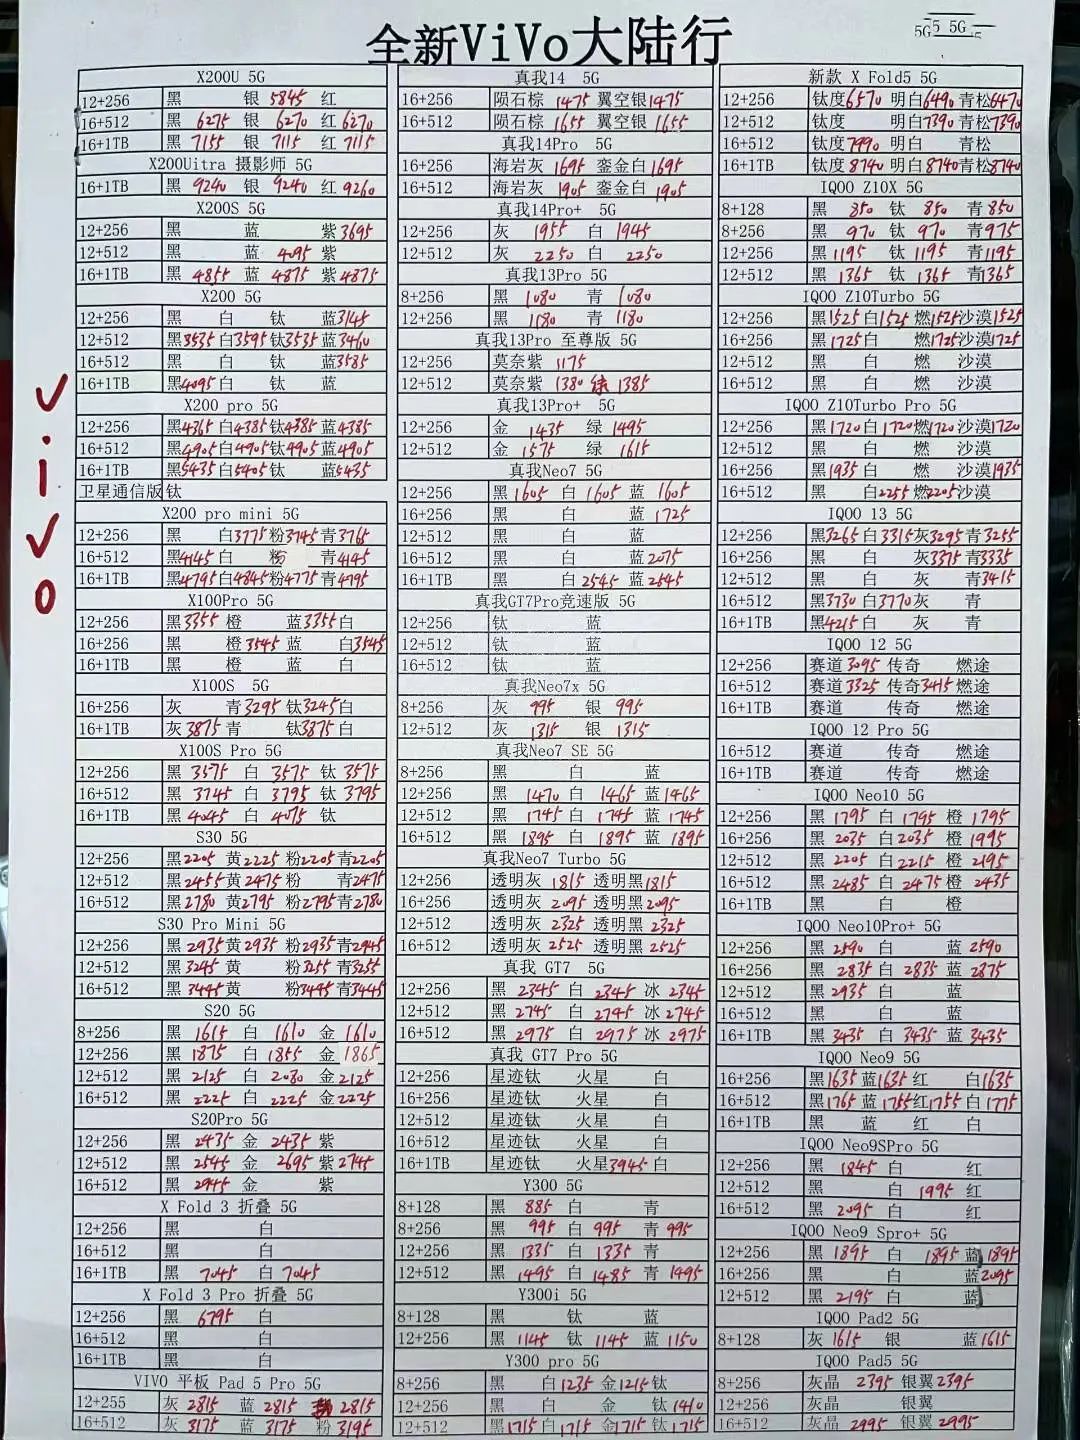 全新ViVo大陆行
5G 5 5G 5
ViVo
X200U 5G
12+256 黑 银 5845 红
16+512 黑 6275 银 6270 红 6270
16+1TB 黑 7155 银 7115 红 7115
X200Uitra 摄影师 5G
16+1TB 黑 9240 银 9240 红 9260
X200S 5G
12+256 黑 蓝 紫 3695
12+512 黑 蓝 4095 紫
16+1TB 黑 4855 蓝 4875 紫 4875
X200 5G
12+256 黑 白 钛 蓝 3145
12+512 黑 3535 白 3595 钛 3535 蓝 3460
16+512 黑 白 钛 蓝 3585
16+1TB 黑 4095 白 钛 蓝
X200 pro 5G
12+256 黑 4365 白 4385 钛 4385 蓝 4385
16+512 黑 4905 白 4905 钛 4905 蓝 4905
16+1TB 黑 5435 白 5405 钛 蓝 5435
卫星通信版 钛
X200 pro mini 5G
12+256 黑 白 3775 粉 3745 青 3765
16+512 黑 4145 白 粉 青 4145
16+1TB 黑 4795 白 4845 粉 4775 青 4795
X100Pro 5G
12+256 黑 3355 橙 蓝 3355 白
16+256 黑 橙 3545 蓝 白 3545
16+1TB 黑 橙 蓝 白
X100S 5G
16+256 灰 青 3295 钛 3245 白
16+1TB 灰 3875 青 钛 3875 白
X100S Pro 5G
12+256 黑 3575 白 3575 钛 3575
16+512 黑 3745 白 3795 钛 3795
16+1TB 黑 4045 白 4075 钛
S30 5G
12+256 黑 2205 黄 2225 粉 2205 青 2205
12+512 黑 2455 黄 2475 粉 青 2475
16+512 黑 2780 黄 2795 粉 2795 青 2780
S30 Pro Mini 5G
12+256 黑 2935 黄 2935 粉 2935 青 2945
12+512 黑 3245 黄 粉 3255 青 3255
16+512 黑 3445 黄 粉 3445 青 3445
S20 5G
8+256 黑 1615 白 1610 金 1610
12+256 黑 1875 白 1855 金 1865
12+512 黑 2125 白 2080 金 2125
16+512 黑 2225 白 2225 金 2225
S20Pro 5G
12+256 黑 2435 金 2435 紫
12+512 黑 2545 金 2695 紫 2745
16+512 黑 2945 金 紫
X Fold 3 折叠 5G
12+256 黑 白
16+512 黑 白
16+1TB 黑 7045 白 7045
X Fold 3 Pro 折叠 5G
12+256 黑 6795 白
16+512 黑 白
16+1TB 黑 白
VIVO 平板 Pad 5 Pro 5G
12+255 灰 2815 蓝 2815 2815
16+512 灰 3175 蓝 3175 粉 3195
真我14 5G
16+256 陨石棕 1475 翼空银 1475
16+512 陨石棕 1655 翼空银 1655
真我14Pro 5G
16+256 海岩灰 1695 銮金白 1695
16+512 海岩灰 1905 銮金白 1905
真我14Pro+ 5G
12+256 灰 1955 白 1945
12+512 灰 2250 白 2250
真我13Pro 5G
8+256 黑 1080 青 1080
12+256 黑 1180 青 1180
真我13Pro 至尊版 5G
12+256 莫奈紫 1175
12+512 莫奈紫 1380 绿 1385
真我13Pro+ 5G
12+256 金 1435 绿 1495
12+512 金 1575 绿 1615
真我Neo7 5G
12+256 黑 1605 白 1605 蓝 1605
16+256 黑 白 蓝 1725
12+512 黑 白 蓝
16+512 黑 白 蓝 2075
16+1TB 黑 白 2545 蓝 2545
真我GT7Pro竞速版 5G
12+256 钛 蓝
12+512 钛 蓝
16+512 钛 蓝
真我Neo7x 5G
8+256 灰 995 银 995
12+512 灰 1315 银 1315
真我Neo7 SE 5G
8+256 黑 白 蓝
12+256 黑 1470 白 1465 蓝 1465
12+512 黑 1745 白 1745 蓝 1745
16+512 黑 1895 白 1895 蓝 1895
真我Neo7 Turbo 5G
12+256 透明灰 1815 透明黑 1815
16+256 透明灰 2095 透明黑 2095
12+512 透明灰 2325 透明黑 2325
16+512 透明灰 2525 透明黑 2525
真我 GT7 5G
12+256 黑 2345 白 2345 冰 2345
12+512 黑 2745 白 2745 冰 2745
16+512 黑 2975 白 2975 冰 2975
真我 GT7 Pro 5G
12+256 星迹钛 火星 白
16+256 星迹钛 火星 白
12+512 星迹钛 火星 白
16+512 星迹钛 火星 白
16+1TB 星迹钛 火星 3945 白
Y300 5G
8+128 黑 885 白 青
8+256 黑 995 白 995 青 995
12+256 黑 1335 白 1335 青
12+512 黑 1495 白 1485 青 1495
Y300i 5G
8+128 黑 钛 蓝
12+256 黑 1145 钛 1145 蓝 1150
Y300 pro 5G
8+256 黑 白 1235 金 1215 钛
12+256 黑 白 金 钛 1410
12+512 黑 1715 白 1715 金 1715 钛 1715
新款 X Fold5 5G
12+256 钛度 6570 明白 6490 青松 6470
12+512 钛度 明白 7390 青松 7390
16+512 钛度 7990 明白 青松
16+1TB 钛度 8740 明白 8740 青松 8740
IQOO Z10X 5G
8+128 黑 850 钛 850 青 850
8+256 黑 970 钛 970 青 975
12+256 黑 1195 钛 1195 青 1195
12+512 黑 1365 钛 1365 青 1365
IQOO Z10Turbo 5G
12+256 黑 1525 白 1525 燃 1525 沙漠 1525
16+256 黑 1725 白 燃 1725 沙漠 1725
12+512 黑 白 燃 沙漠
16+512 黑 白 燃 沙漠
IQOO Z10Turbo Pro 5G
12+256 黑 1720 白 1720 燃 1720 沙漠 1720
12+512 黑 白 燃 沙漠
16+256 黑 1935 白 燃 沙漠 1935
16+512 黑 白 2255 燃 2205 沙漠
IQOO 13 5G
12+256 黑 3265 白 3315 灰 3295 青 3255
16+256 黑 白 灰 3375 青 3335
12+512 黑 白 灰 青 3415
16+512 黑 3730 白 3770 灰 青
16+1TB 黑 4215 白 灰 青
IQOO 12 5G
12+256 赛道 3095 传奇 燃途
16+512 赛道 3325 传奇 3415 燃途
16+1TB 赛道 传奇 燃途
IQOO 12 Pro 5G
16+512 赛道 传奇 燃途
16+1TB 赛道 传奇 燃途
IQOO Neo10 5G
12+256 黑 1795 白 1795 橙 1795
16+256 黑 2035 白 2035 橙 1995
12+512 黑 2205 白 2215 橙 2195
16+512 黑 2485 白 2475 橙 2435
16+1TB 黑 白 橙
IQOO Neo10Pro+ 5G
12+256 黑 2590 白 蓝 2590
16+256 黑 2835 白 2835 蓝 2875
12+512 黑 2935 白 蓝
16+512 黑 白 蓝
16+1TB 黑 3435 白 3435 蓝 3435
IQOO Neo9 5G
16+256 黑 1635 蓝 1635 红 白 1635
16+512 黑 1765 蓝 1755 红 1755 白 1775
16+1TB 黑 蓝 红 白
IQOO Neo9SPro 5G
12+256 黑 1845 白 红
12+512 黑 白 1995 红
16+512 黑 2095 白 红
IQOO Neo9 Spro+ 5G
12+256 黑 1895 白 1895 蓝 1895
16+256 黑 白 蓝 2095
12+512 黑 2195 白 蓝
IQOO Pad2 5G
8+128 灰 1615 银 蓝 1615
IQOO Pad5 5G
8+256 灰晶 2395 银翼 2395
12+256 灰晶 银翼
16+512 灰晶 2995 银翼 2995